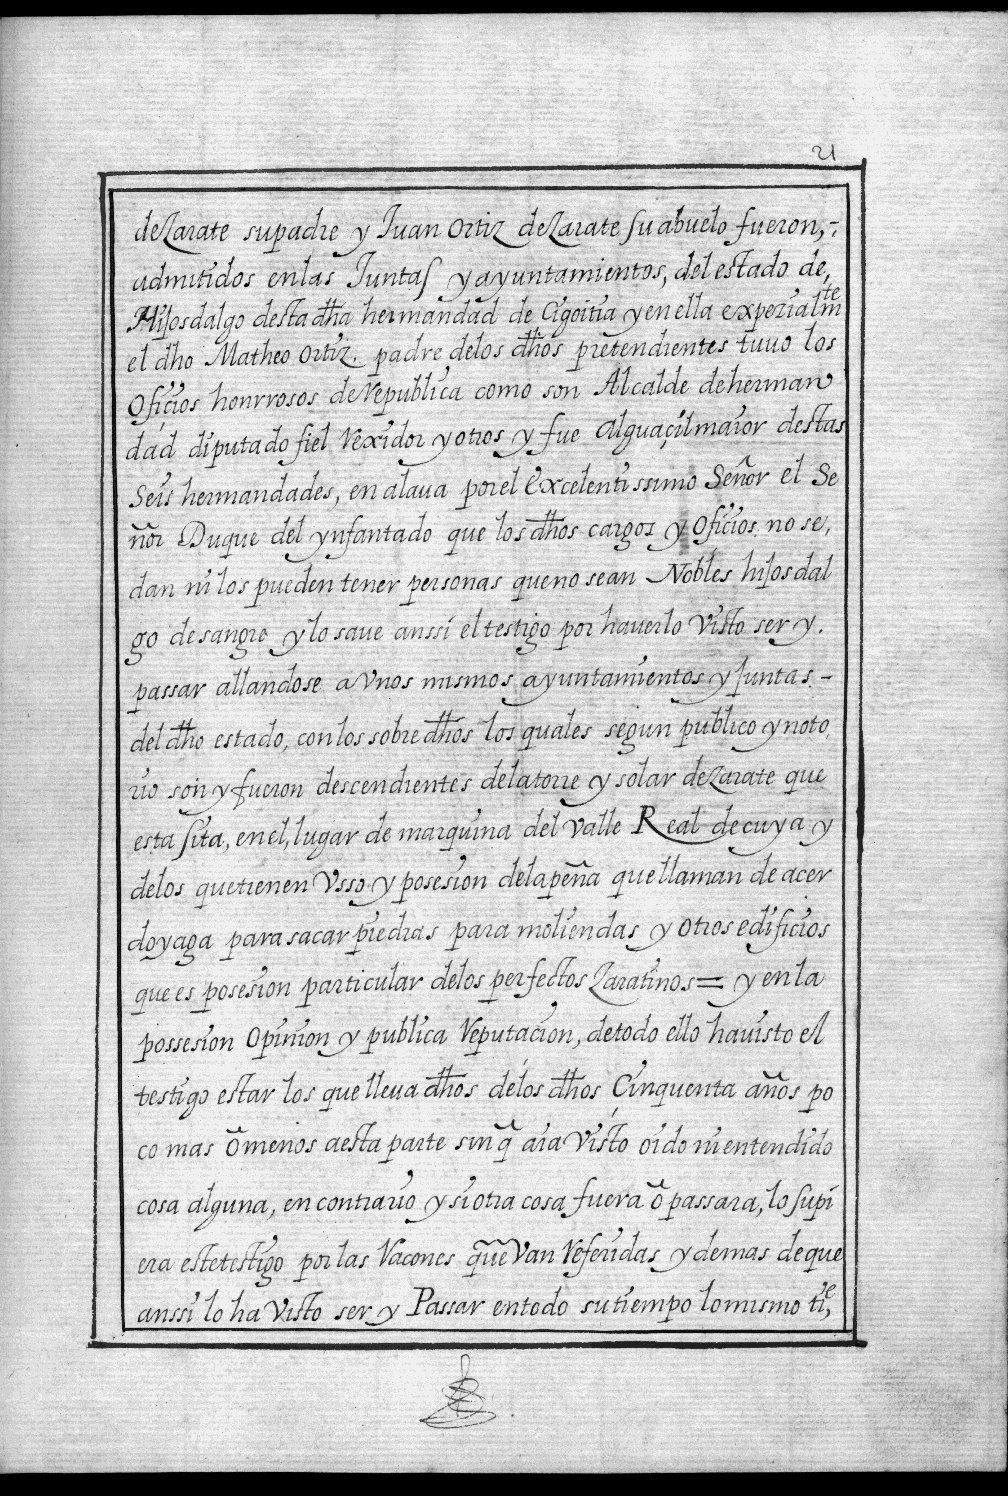 21
deZarate supadre y Juan Ortiz deZarate su abuelo fueron,
admitidos enlas Juntas y ayuntamientos, del estado de,
Hijosdalgo desta dha hermandad de Cigoitia y en ella expezialmte
el dho Matheo Ortiz. padre delos dhos pretendientes tuuo los
Oficios honrrosos de Republica como son Alcalde de herman
dad diputado fiel Rexidor y otros y fue Alguaçil maior destas
Seis hermandades, en alaua por el Excelentissimo Señor el Se
ñor Duque del ynfantado que los dhos cargos y Oficios no se,
dan ni los pueden tener personas que no sean Nobles hijosdal
go de sangre y lo saue anssi el testigo por hauerlo Visto ser y.
passar allandose a Vnos mismos ayuntamientos y Juntas -
del dho estado, con los sobre dhos los quales segun publico y noto
rio son y fueron descendientes delatorre y solar deZarate que
esta sita, en el, lugar de marquina del Valle Real de cuya y
delos quetienen Vsso y posesion dela peña que llaman de acer
doyaga para sacar piedras para moliendas y Otros edificios
que es posesion particular delos perfectos Zaratinos = y en la
possesion Opinion y publica Reputacion, de todo ello ha uisto el
testigo estar los que lleua dhos delos dhos Cinquenta años po
co mas ô menos aesta parte sin q̃ aia Visto oido ni entendido
cosa alguna, en contrario y si otra cosa fuera ô passara, lo supi
era este testigo por las Raçones que Van Referidas y demas de que
anssi lo ha Visto ser y Passar en todo su tiempo lo mismo tie,